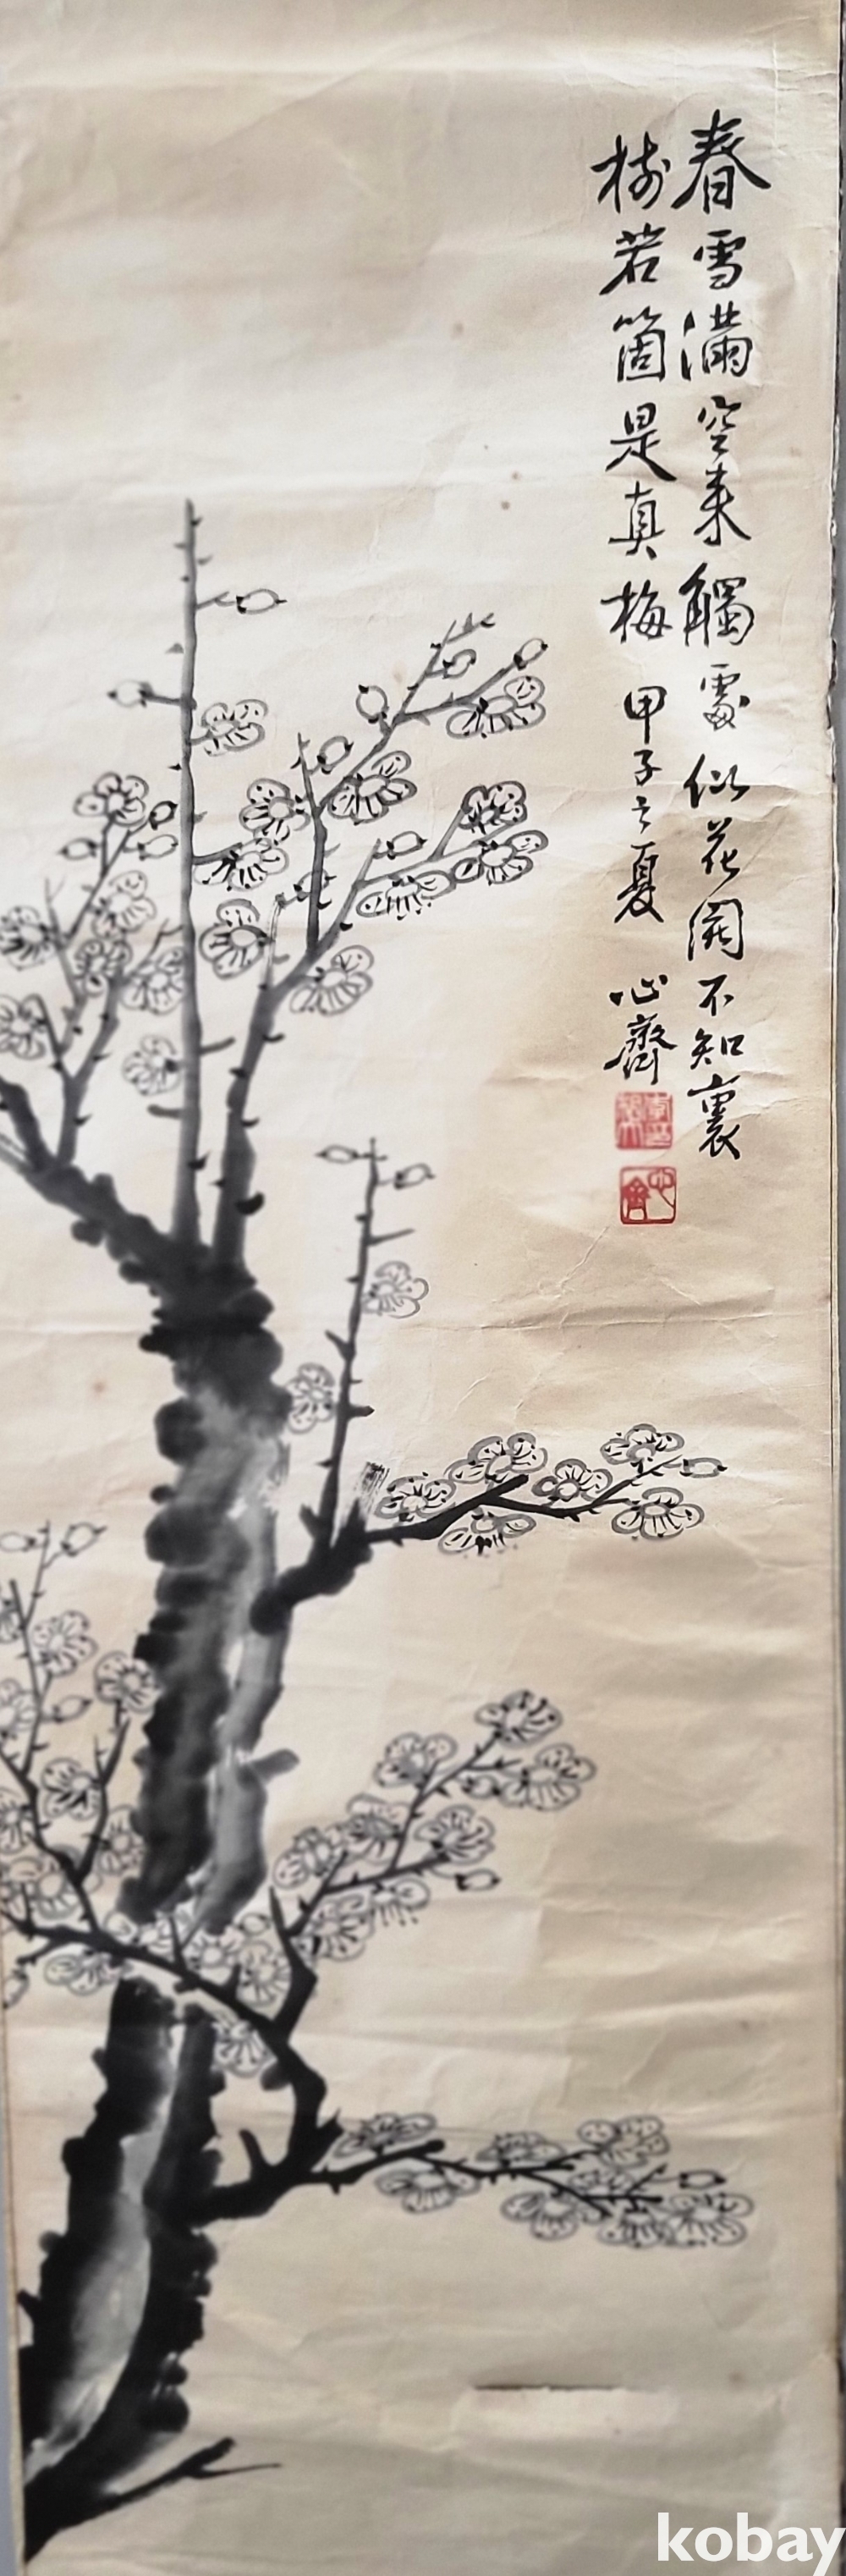 春雪滿空來觸處似花開不知裏
樹若箇是真梅 甲子之夏 心齋
心齋
kobay